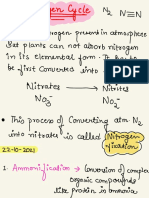 gen Cycle N₂ N≡N
ogen present in atmosphere
But plants can not absorb nitrogen
in its elemental form. It has to
be first converted into
Nitrates → Nitrites
NO₃⁻ NO₂⁻
• This process of Converting atm. N₂
into nitrates is called Nitrogen
fixation
22-10-2021
1. Ammonification → Conversion of complex
organic compounds
like protein in ammonia